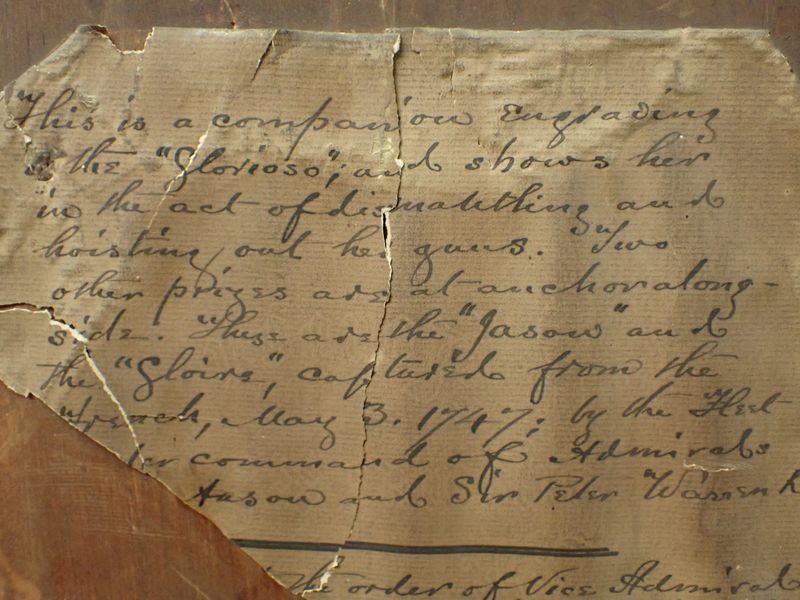 This is a companion Engraving
the "Glorioso"; and shows her
in the act of dismantling and
hoisting out her guns. Two
other prizes are at anchor along-
side. These are the "Jason" and
the "Gloire," captured from the
French, May 3. 1747, by the Fleet
command of Admirals
Anson and Sir Peter Warren K
the order of Vice Admiral